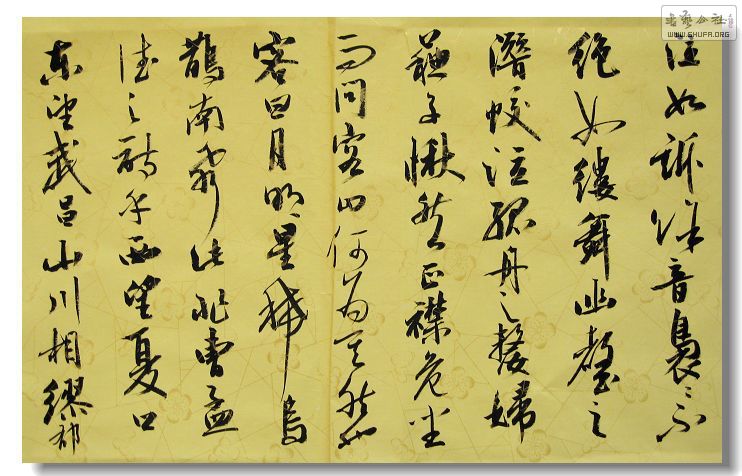 书艺公社
WWW.SHUFA.ORG
泣如訴餘音裊〻不
絕如縷舞幽壑之
潛蛟泣孤舟之嫠婦
蘇子愀然正襟危坐
而問客曰何為其然也
客曰月明星稀烏
鵲南飛此非曹孟
德之詩乎西望夏口
東望武昌山川相繆郁